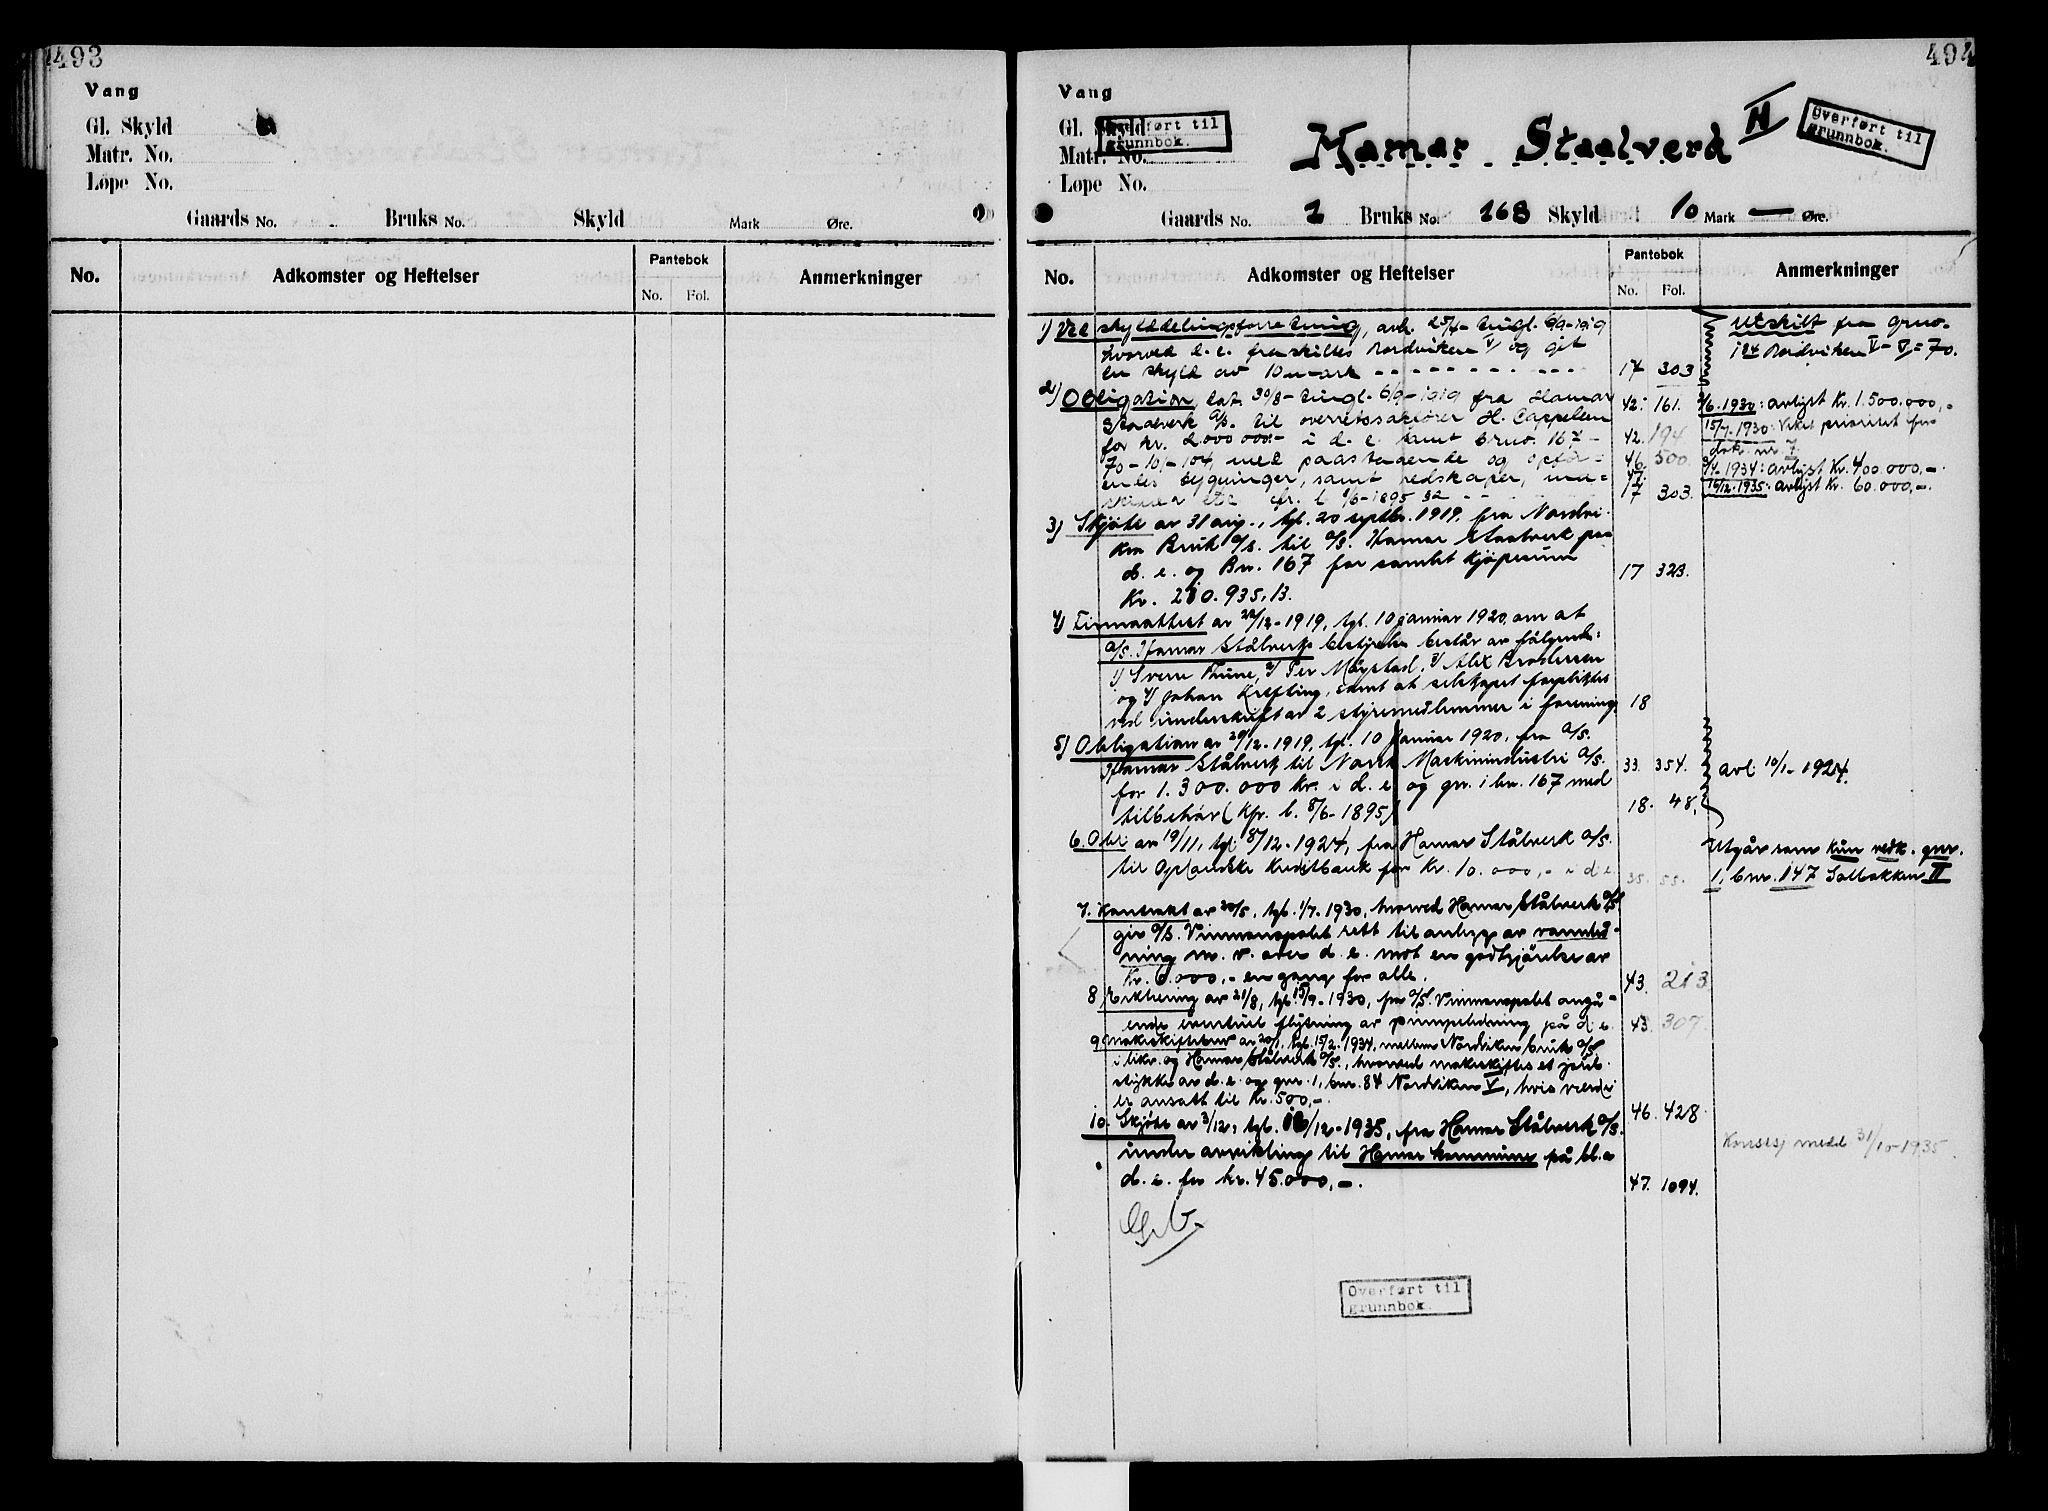 493
Vang
Gl. Skyld
Matr. No.
Løpe No.
Gaards No. Bruks No. Skyld Mark Øre.
No. Adkomster og Heftelser Pantebok No. Fol. Anmerkninger
494
Vang
Gl. Skyld
Matr. No.
Løpe No.
Overført til
grunnbok.
Hamar Staalverk II
Overført til
grunnbok.
Gaards No. 1 Bruks No. 168 Skyld 10 Mark — Øre.
No. Adkomster og Heftelser Pantebok No. Fol. Anmerkninger
1) Ved skylddelingsforretning, avh. 25/4 - tingl. 6/9-1919
hvorved d. e. fraskiltes Nordviken V og git
en skyld av 10 mark - - - - 17 303
Utskilt fra gnr.
1 84 Nordviken V - = 70.
2) Obligation, dat. 30/8 - tingl. 6/9-1919 fra Hamar
Staalverk A/S. til overretssakfører H. Cappelen
for kr. 2000 000.- i d. e. samt bruno. 167 -
70 - 101 - 104, med paastaaende og opfør-
endes bygninger, samt redskaper, ma-
skiner etc. cfr. l 8/6-1895
42. 161.
42. 194
46. 500
17 303.
/6. 1930: avlyst Kr. 1.500.000,-
15/7. 1930: Veket prioritet for
dok. nr. 7.
/4-1934: avlyst Kr. 400.000,-
16/12. 1935: avlyst Kr. 60.000,-.
3) Skjøte av 31 aug., tgl. 20 septbr. 1919, fra Nordvi-
ken Bruk A/S. til A/S. Hamar Staalverk paa
d. e. og Bn. 167 for samlet kjøpesum
Kr. 210.935,13.
17 323.
4) Firmaattest av 22/12-1919, tgl. 10 januar 1920, om at
A/S. Hamar Stålverks bestyrelse består av følgende:
1) Sverre Thune, 2/ Per Møystad, 3/ Alex Brodersen
og 4) Johan Krefting, samt at selskapet forpliktes
ved underskrift av 2 styremedlemmer i forening. 18
5) Obligation av 29/12-1919, tgl. 10 januar 1920, fra A/S.
Hamar Stålverk til Norsk Maskinindustri A/S.
for 1.300.000 kr. i d. e. og gn. 1 bn. 167 med
tilbehør (kfr. l. 8/6-1895)
33. 354.
18. 48.
avl. 10/1-1924.
6. Obl av 19/11, tgl. 8/12-1924, fra Hamar Stålverk A/S.
til Oplandske Kreditbank for Kr. 10.000,- i d e. 35. 55.
Utgår som kun vedk. gnr.
1, bnr. 147 Solbakken II
7. Kontrakt av 20/5, tgl. 1/7. 1930, hvorved Hamar Stålverk A/S
gir A/S. Vinmonopolet rett til anlegg av vannled-
ning m. v. over d. e. mot en godtgjørelse av
Kr. 6.000,- en gang for alle. 43. 213
8. Erklæring av 21/8, tgl. 15/9-1930, fra A/S. Vinmonopolet angå-
ende eventuel flytning av pumpeledning på d. e. 43. 307.
9. Makeskiftebrev av 20/1, tgl. 15/2. 1934, mellem Nordviken bruk A/S
i likv. og Hamar Stålverk A/S., hvorved makeskiftes et jord-
stykke av d. e. og gnr. 1, bnr. 84 Nordviken V, hvis verdi
er ansatt til Kr. 500,-. 46. 428
10. Skjøte av 3/12, tgl. 16/12-1935, fra Hamar Stålverk A/S.
under avvikling til Hamar kommune på bl. a
d. e. for kr. 45.000,-. 47. 1094.
Konsesj medd 31/10-1935.
Overført til
grunnbok.